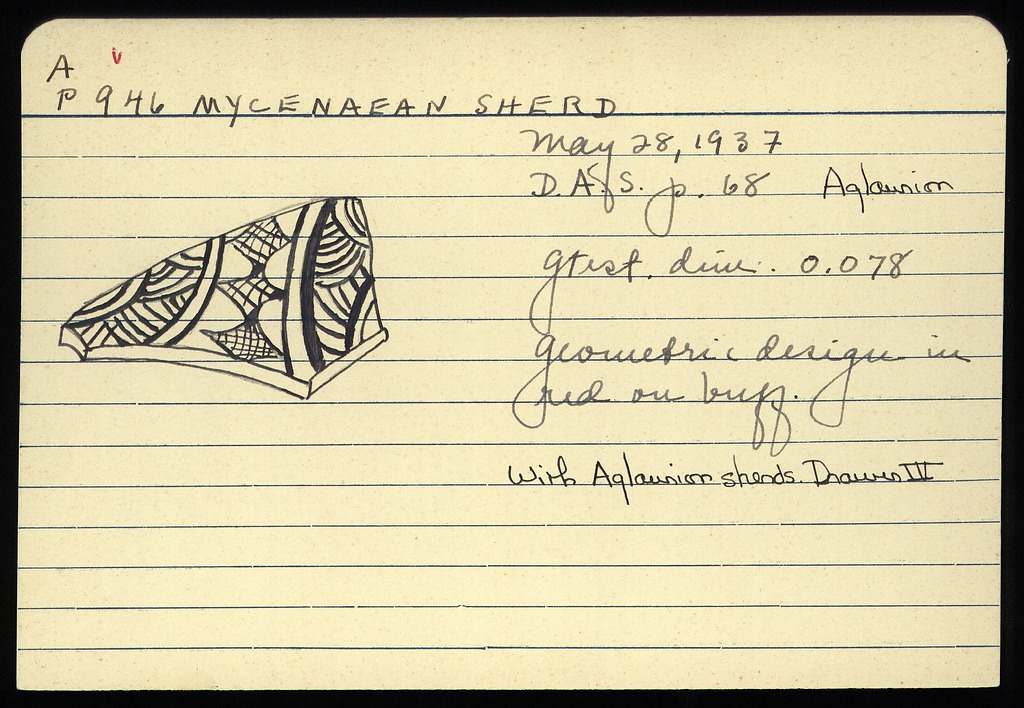 A v
P 946 MYCENAEAN SHERD
May 28, 1937
D.A.S. p. 68 Aglaurion
gtest. dim. 0.078
Geometric design in
red on buff.
With Aglaurion sherds. Drawer IV